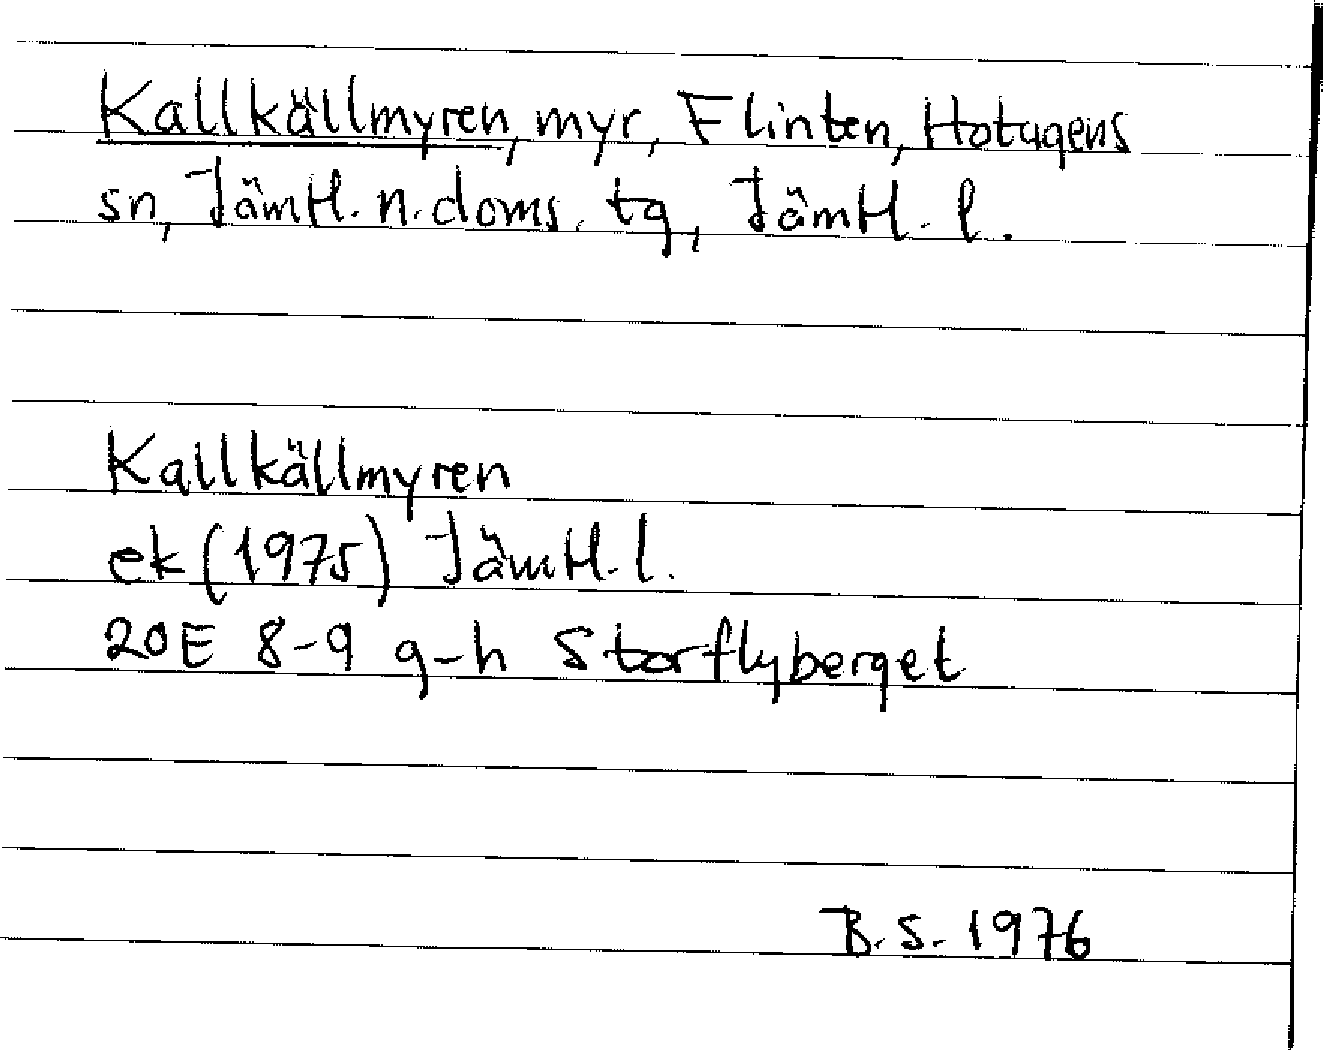 Kallkällmyren, myr, Flinten, Hotagens
sn, Jämtl. n. doms. tg, Jämtl. l.
Kallkällmyren
ek (1975) Jämtl. l.
20E 8-9 g-h Storflyberget
B.S. 1976